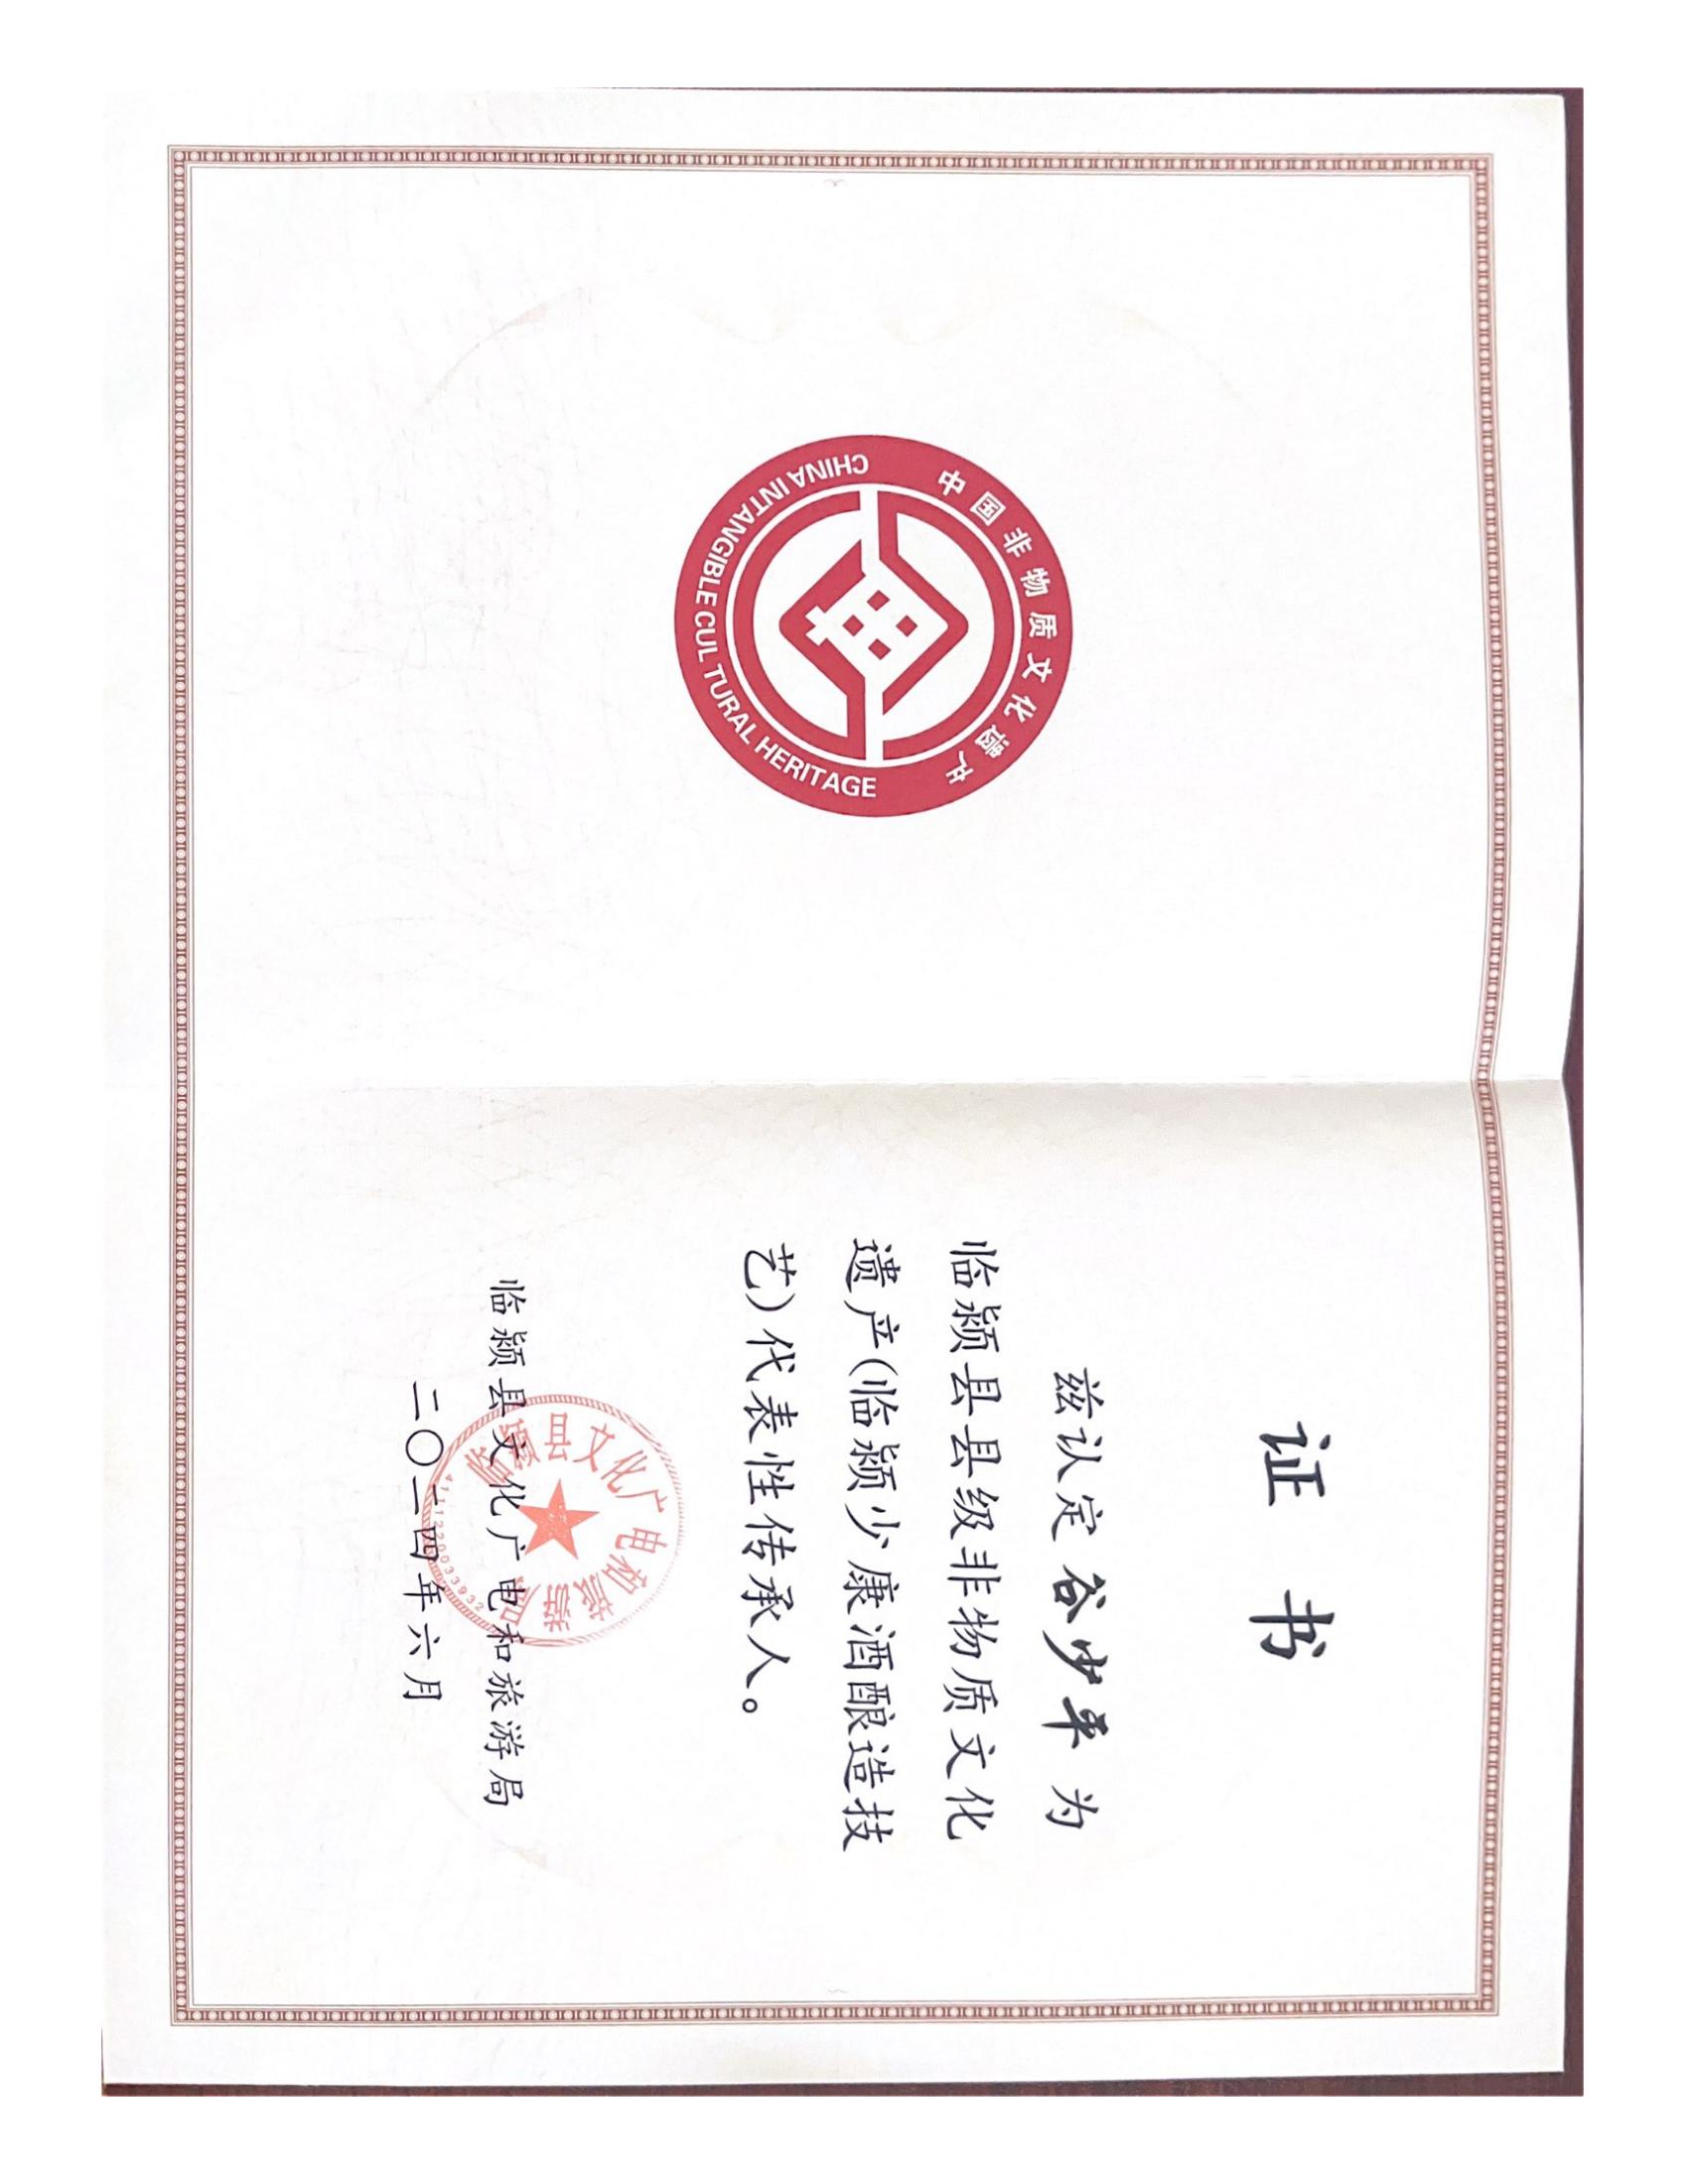 中国非物质文化遗产
CHINA INTANGIBLE CULTURAL HERITAGE
证书
兹认定 谷少平 为
临颍县县级非物质文化
遗产(临颍少康酒酿造技
艺)代表性传承人。
临颍县文化广电和旅游局
二〇二四年六月
临颍县文化广电和旅游局
4111220033932